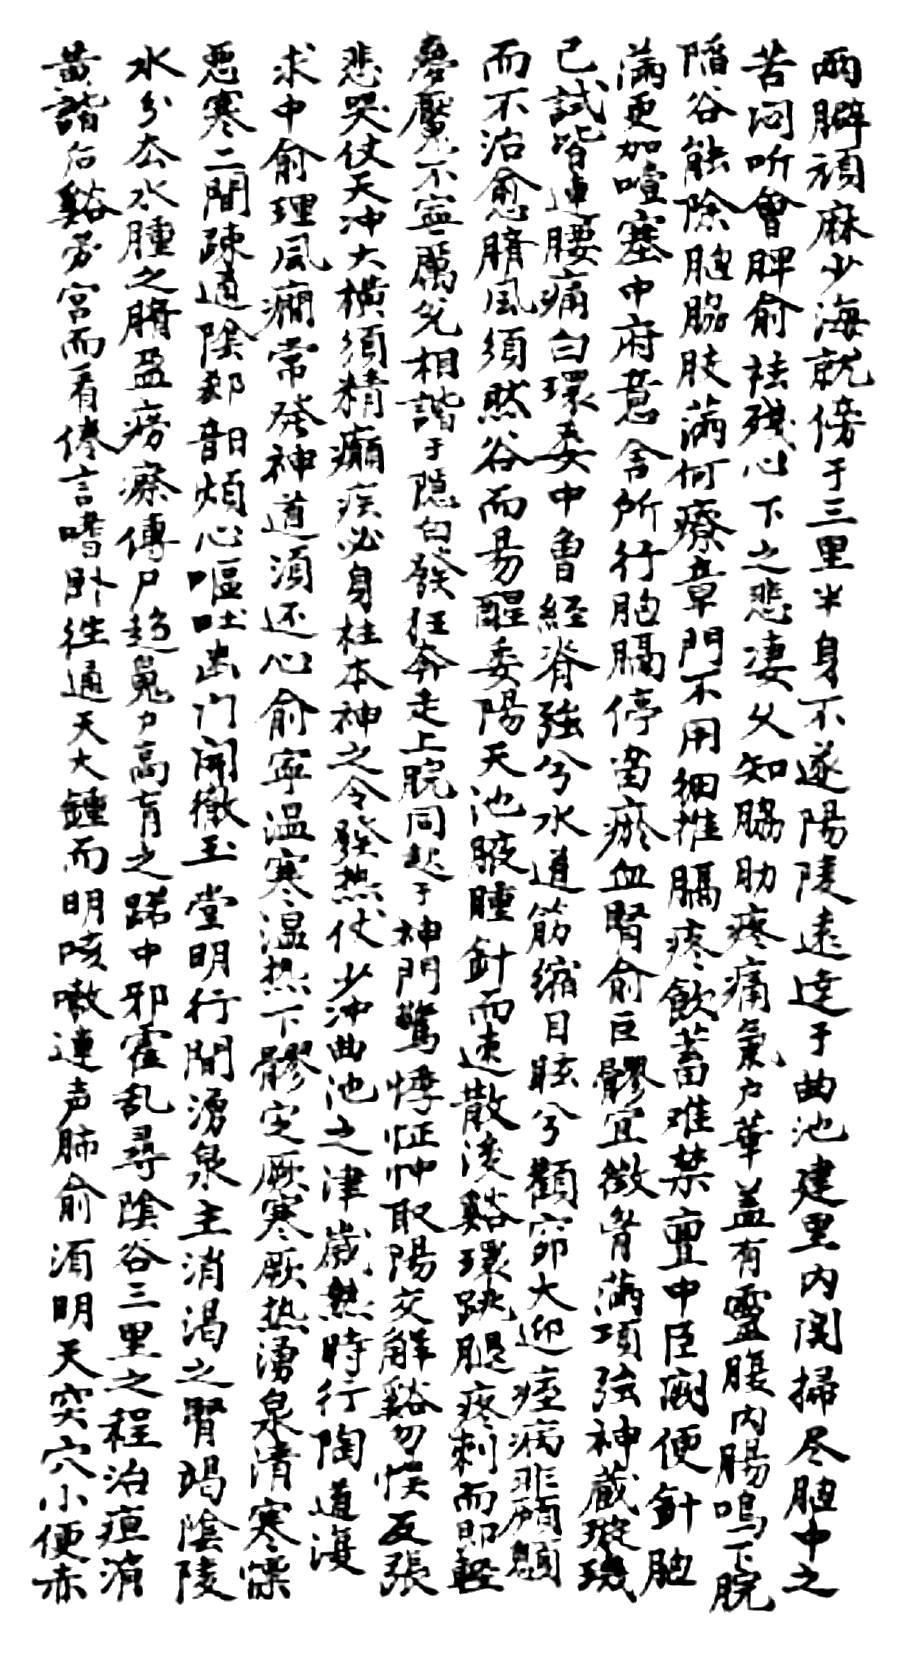 兩臂頑麻少海就傍于三里半身不遂陽陵遠達于曲池建里内関掃尽胸中之
苦闷听會脾俞祛殘心下之悲凄久知脇肋疼痛氣户華盖有靈腹内腸鳴下脘
陷谷能除胸脇肢满何療章門不用細推膈疼飲蓄难禁亶中臣阙便針胸
满更加噎塞中府意舍所行胸膈停畄瘀血腎俞巨髎宜徵胷满項强神藏璇璣
已試背連腰痛白環委中曾経脊強兮水道筋缩目眩兮顴窌大迎痓病非顱顖
而不治愈臍風須然谷而易醒委陽天池腋腫針而速散後谿環跳腿疼刺而即軽
夢魘不寧厲兌相諧于隠白發狂奔走上脘同起于神門驚悸怔忡取陽交解谿勿悮反張
悲哭仗天冲大横須精癲疾必身柱本神之令發热仗少冲曲池之津歲熱時行陶道復
求中俞理風癇常發神道須还心俞寧温寒湿热下髎定厥寒厥热湧泉清寒慄
悪寒二間疎通陰郄韽煩心嘔吐幽门開徹玉堂明行間湧泉主消渴之腎竭陰陵
水分去水腫之臍盈痨瘵傳尸趋魄户膏肓之路中邪霍乱尋陰谷三里之程治疸消
黄諧后谿劳宫而看倦言嗜卧往通天大鍾而明咳嗽連声肺俞須明天突穴小便赤